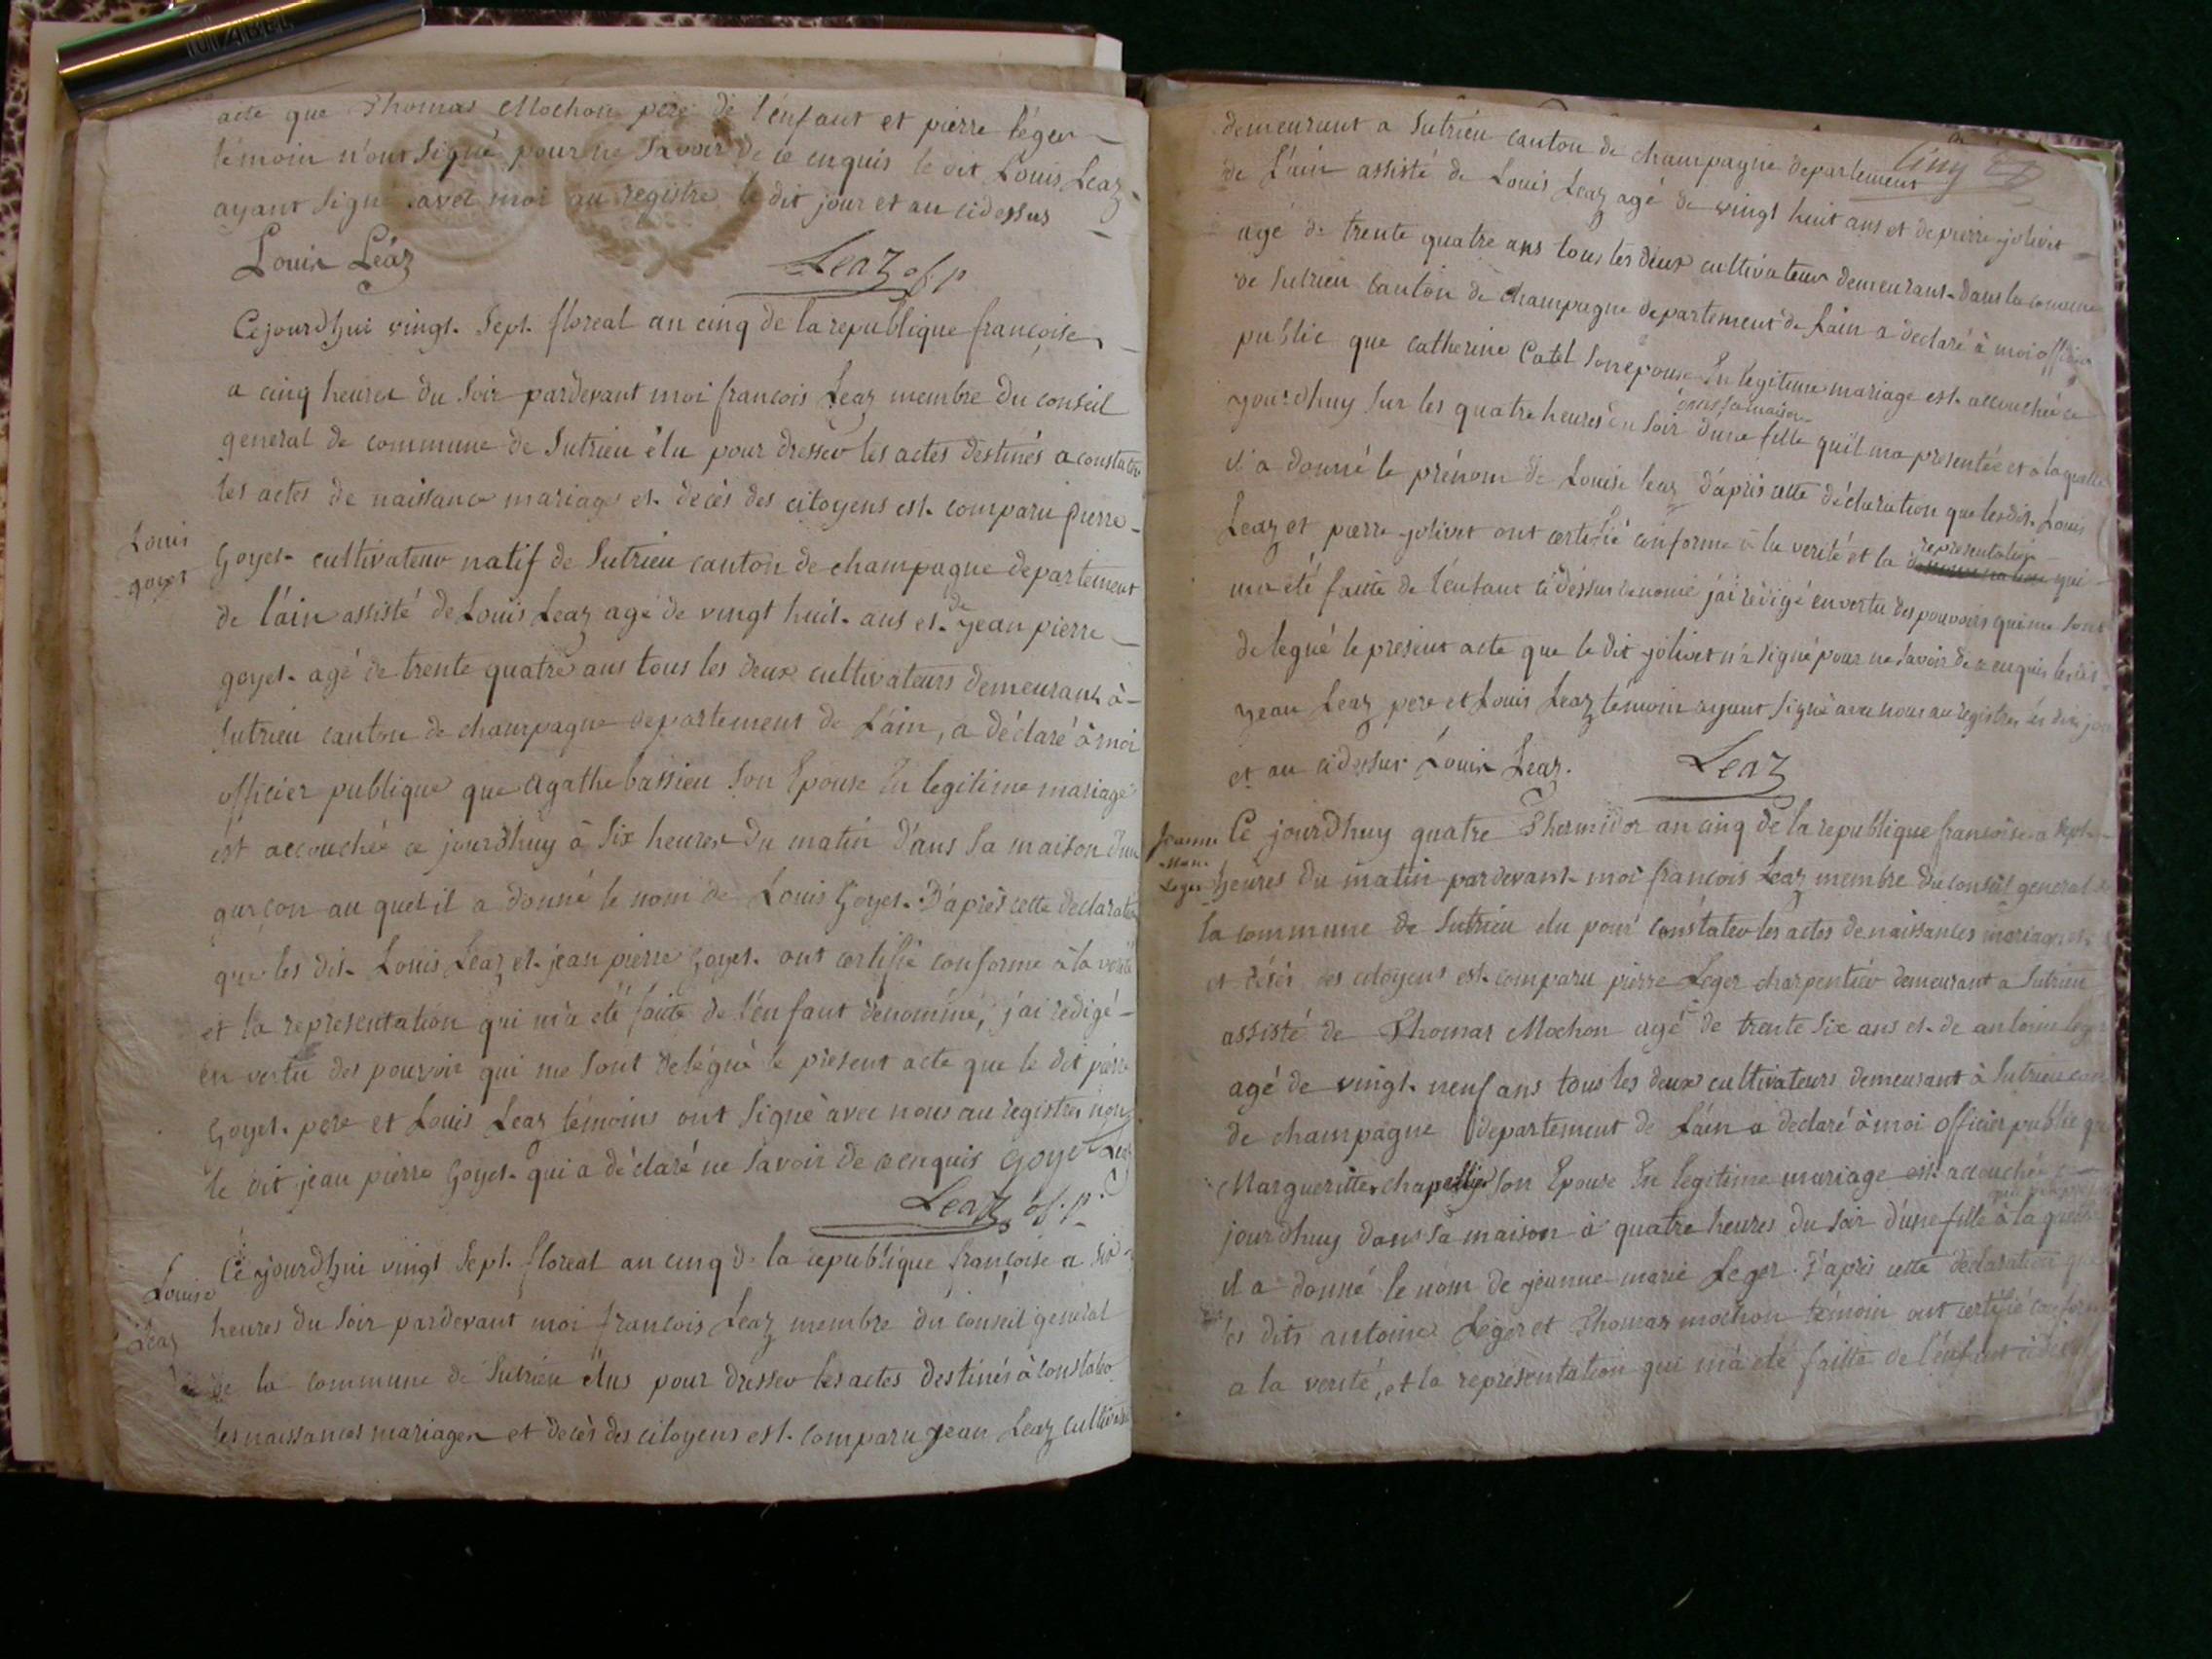 MABEL
acte que Thomas Mochon pere de l'enfant et pierre léger
témoin n'ont signé pour ne savoir de ce enquis le dit Louis Leaz
ayant signé avec moi au registre le dit jour et an cidessus
Louis Léaz
Leaz of p
Cejourdhui vingt sept floreal an cinq de la republique françoise
a cinq heures du soir pardevant moi françois Leaz membre du conseil
general de commune de Sutrieu élu pour dresser les actes destinés a constater
les actes de naissance mariages et decès des citoyens est comparu pierre
Louis
goyet
Goyet cultivateur natif de Sutrieu canton de champagne departement
de l'ain assisté de Louis Leaz agé de vingt huit ans et de jean pierre
goyet agé de trente quatre ans tous les deux cultivateurs demeurant à
Sutrieu canton de champagne departement de l'ain, a déclaré à moi
officier publique que agathe bassieu son Epouse En legitime mariage
est accouchée ce jourdhuy à six heures du matin dans sa maison d'un
garçon au quel il a donné le nom de Louis Goyet. D'après cette declaration
que les dit Louis Leaz et jean pierre goyet ont certifié conforme à la verité
et la representation qui m'a été faite de l'enfant denommé, j'ai rédigé
en vertu des pouvoir qui me sont delégué le present acte que le dit pierre
Goyet pere et Louis Leaz témoins ont signé avec nous au registre non
le dit jean pierre Goyet qui a déclaré ne savoir de ce enquis goyet Leaz
Leaz of. p.
Ce jourdhui vingt sept floreal an cinq de la republique françoise a six
Louise
Leaz
heures du soir pardevant moi françois Leaz membre du conseil general
de la commune de Sutrieu élus pour dresser les actes destinés à constater
les naissances mariages et decès des citoyens est comparu jean Leaz cultivateur
cinq
demeurant a Sutrieu canton de champagne departement
de l'ain assisté de Louis Leaz agé de vingt huit ans et de pierre jolivet
agé de trente quatre ans tous les deux cultivateur demeurant dans la commune
de Sutrieu canton de champagne departement de l'ain a declaré à moi officier
public que catherine Catel son epouse En legitime mariage est accouchée ce
dans sa maison
jourdhuy sur les quatre heures du soir d'une fille qu'il ma presentée et à laquelle
il a donné le prénom de Louise leaz d'après cette déclaration que les dit Louis
Leaz et pierre jolivet ont certifié conforme à la verité et la representation qui
ma été faitte de l'enfant ci dessus denomé j'ai rédigé en vertu des pouvoirs qui me sont
delegué le present acte que le dit jolivet n'a signé pour ne savoir de ce enquis les dit
jean Leaz pere et Louis Leaz témoin ayant signé avec nous au registre les dits jour
et an cidessus Louis Leaz.
Leaz
Jeanne
marie
Leger
Ce jourdhuy quatre Thermidor an cinq de la republique françoise a sept
heures du matin pardevant moi françois Leaz membre du conseil general de
la commune de Sutrieu elu pour constater les actes de naissances mariages et
et décès des citoyens est comparu pierre Leger charpentier demeurant a Sutrieu
assisté de Thomas Mochon agé de trente six ans et de antoine leger
agé de vingt neuf ans tous les deux cultivateurs demeurant à Sutrieu canton
de champagne departement de l'ain a declaré à moi officier public que
Margueritte chapellier son Epouse En legitime mariage est accouchée ce
jourdhuy dans sa maison à quatre heures du soir d'une fille à la quelle
il a donné le nom de jeanne marie Leger. D'après cette declaration que
les dits antoine Leger et Thomas mochon témoin ont certifié conforme
a la verité, et la representation qui m'a été faitte de l'enfant ci dessus